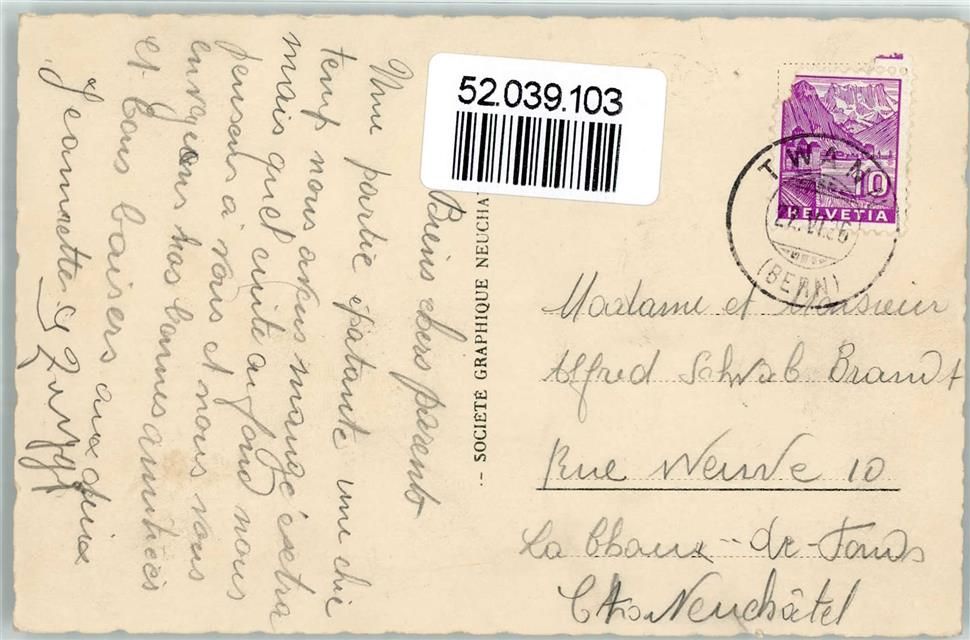 52.039.103
Biens chers parents
Une partie épatante une chic
temp nous avons mangé éxtra
mais quel cuite au fond nous
pensens à vous et nous vous
envoyons nos bonnes amitiés
et bons baisers aux deux
Jeannette
SOCIETE GRAPHIQUE NEUCHA
TWANN
22.VI.36
(BERN)
10
HELVETIA
Madame et Monsieur
Alfred Schwab Brandt
Rue Neuve 10
La Chaux-de-Fonds
Ct. Neuchâtel